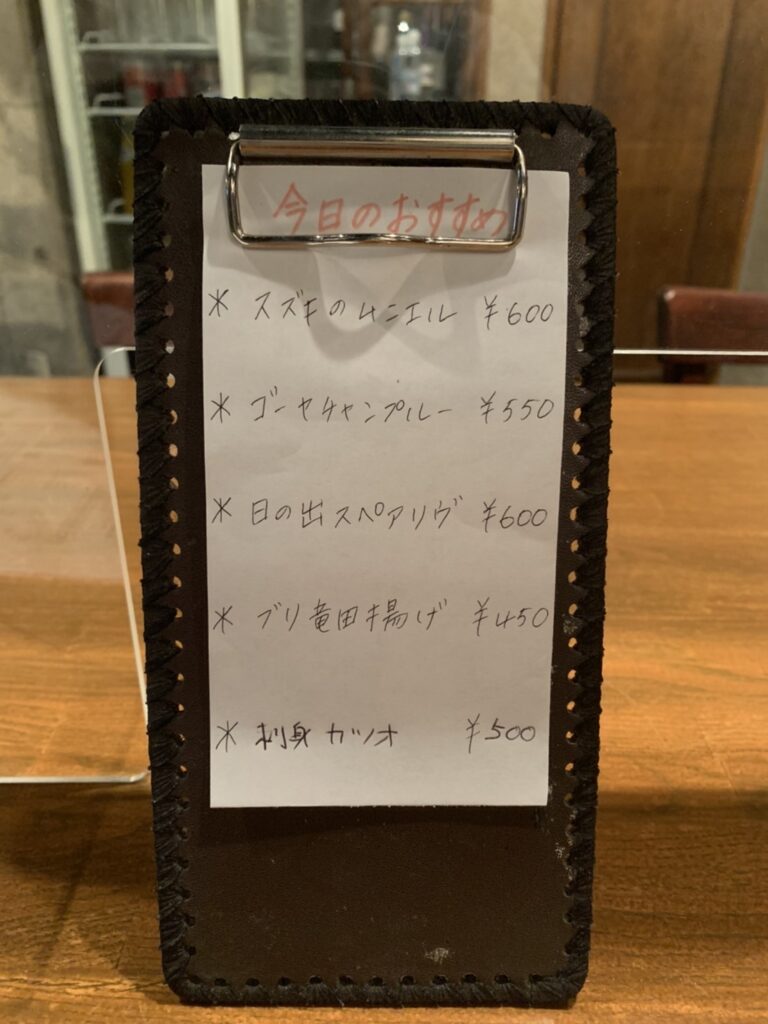 今日のおすすめ
* スズキのムニエル ¥600
* ゴーヤチャンプルー ¥550
* 日の出スペアリヴ ¥600
* ブリ竜田揚げ ¥450
* 刺身 カツオ ¥500